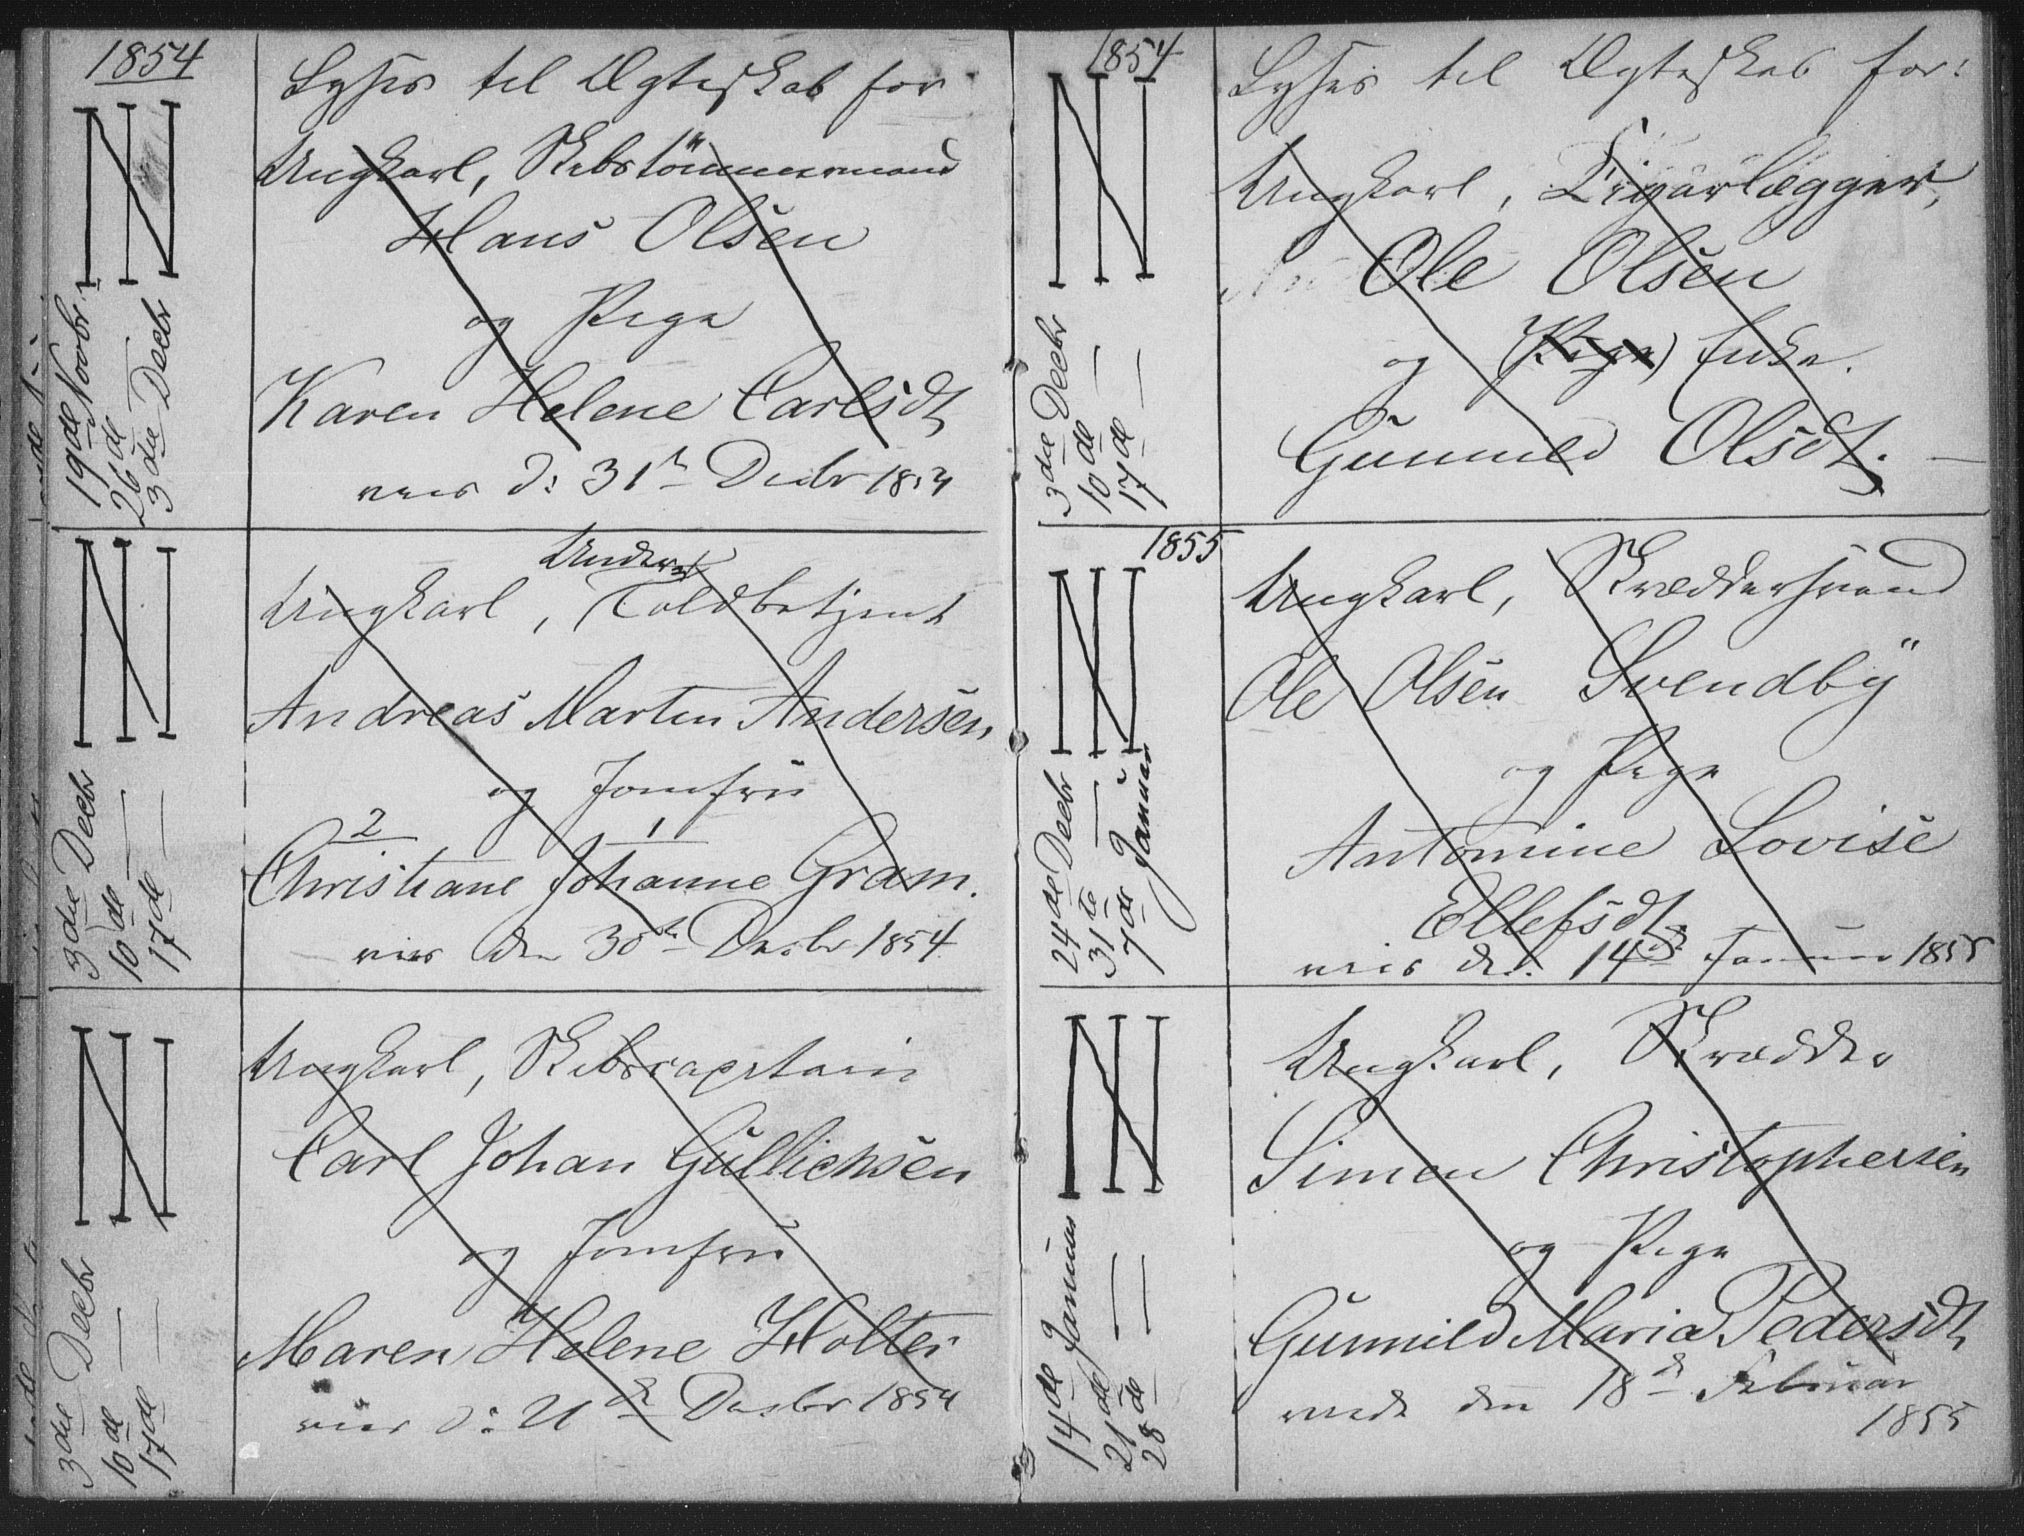 1854
Lyses til Ægteskab for
Ungkarl, Skibstömmermand
Hans Olsen
og Pige
Karen Helene Carlsdt
19de Novbr
26de —
3die Decbr
viet d: 31te Decbr 1854
Under
Ungkarl, Toldbetjent
Andreas Martin Andersen,
og Jomfru
2 1
Christiane Johanne Gram.
3die Decbr
10de —
17de —
viet den 30te Decbr 1854
Ungkarl, Skibscapitain
Carl Johan Gullichsen
og Jomfru
Maren Helene Holter
3die Decbr
10de —
17de —
viet d: 21de Decbr 1854
1854
Lyses til Ægteskab for:
Ungkarl, Cigarlægger,
Ole Olsen
og (Pige) Enke.
Gunnild Olsdt. —
3die Decbr
10de —
17de —
1855
Ungkarl, Skræddersvend
Ole Olsen Svendby
og Pige
Antomine Lovise
Ellefsdt
24de Decbr
31te —
7de Januar
viet d: 14de Januar 1855
Ungkarl, Skrædder
Simen Christophersen
og Pige
Gunnild Maria Pedersdt
14de Januar
21de —
28de —
viede den 18de Februar
1855